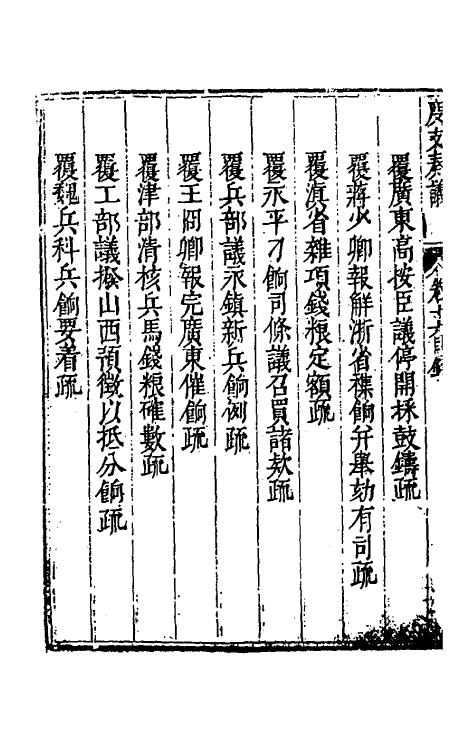 度支奏議
卷十六目錄
覆廣東高按臣議停開採鼓鑄疏
覆蔣少卿報解浙省襍餉并舉劾有司疏
覆滇省雜項錢粮定額疏
覆永平刁餉司條議召買諸欵疏
覆兵部議永鎮新兵餉疏
覆王冏卿報完廣東催餉疏
覆津部清核兵馬錢粮確數疏
覆工部議撥山西預徵以抵分餉疏
覆魏兵科兵餉要着疏